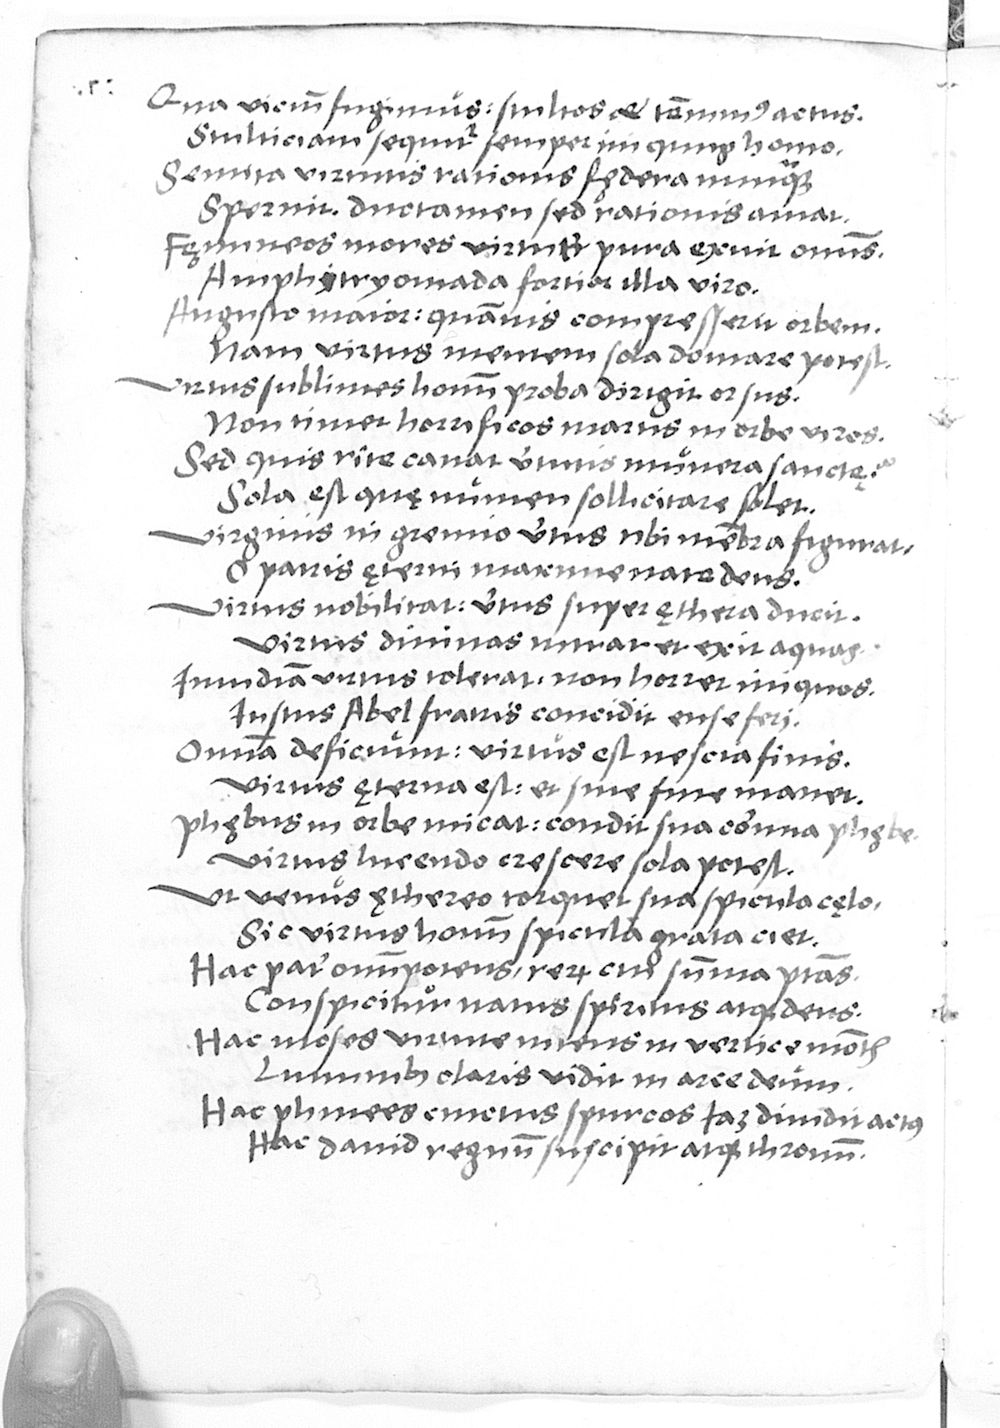 Qua viciũ fugimus: stultos &amp; tẽnimꝰ actus.
Stulticiam sequitᷣ semper iniquus homo.
Semita virtutis rationis fędera nunqᷓ
Spernit. ductamen sed rationis amat.
Fęmineos mores virtutis pura exuit omĩs.
Amphitryoniada fortior illa viro.
Augusto maior: quãuis compresserit orbem.
Nam virtus mentem sola domare potest.
Virtus sublimes hominũ proba dirigit orsus.
Non timet horrificos martis in orbe viros.
Sed quis rite canat v̓tutis munera sanctę:
Sola est quę numen sollicitare solet.
Virginis in gremio v̓tus tibi mẽbra figurat.
O patris ęterni maxime nate deus.
Virtus nobilitat: v̓tus super ęthera ducit.
Virtus diuinas intrat et exit aquas.
Inuidiã virtus tolerat. non horret iniquos.
Iustus Abel fratris concidit ense feri.
Omnia deficiunt: virtus est nescia finis.
Virtus ęterna est: et sine fine manet.
Phębus in orbe micat: condit sua cornua phębe.
Virtus lucendo crescere sola potest.
Ut venus ęthereo torquet sua spicula cęlo.
Sic virtus hominũ spicula grata ciet.
Hac pater omĩpotens, reꝝ cui sũma ptãs.
Conspicitur natus spiritus atqꝫ deus.
Hac moses virtute nitens in vertice mõtis
Luminibꝫ claris vidit in arce deum.
Hac phinees cinctus spurcos diuidit actꝰ
Hac dauid regnũ suscipit atqꝫ thronũ.